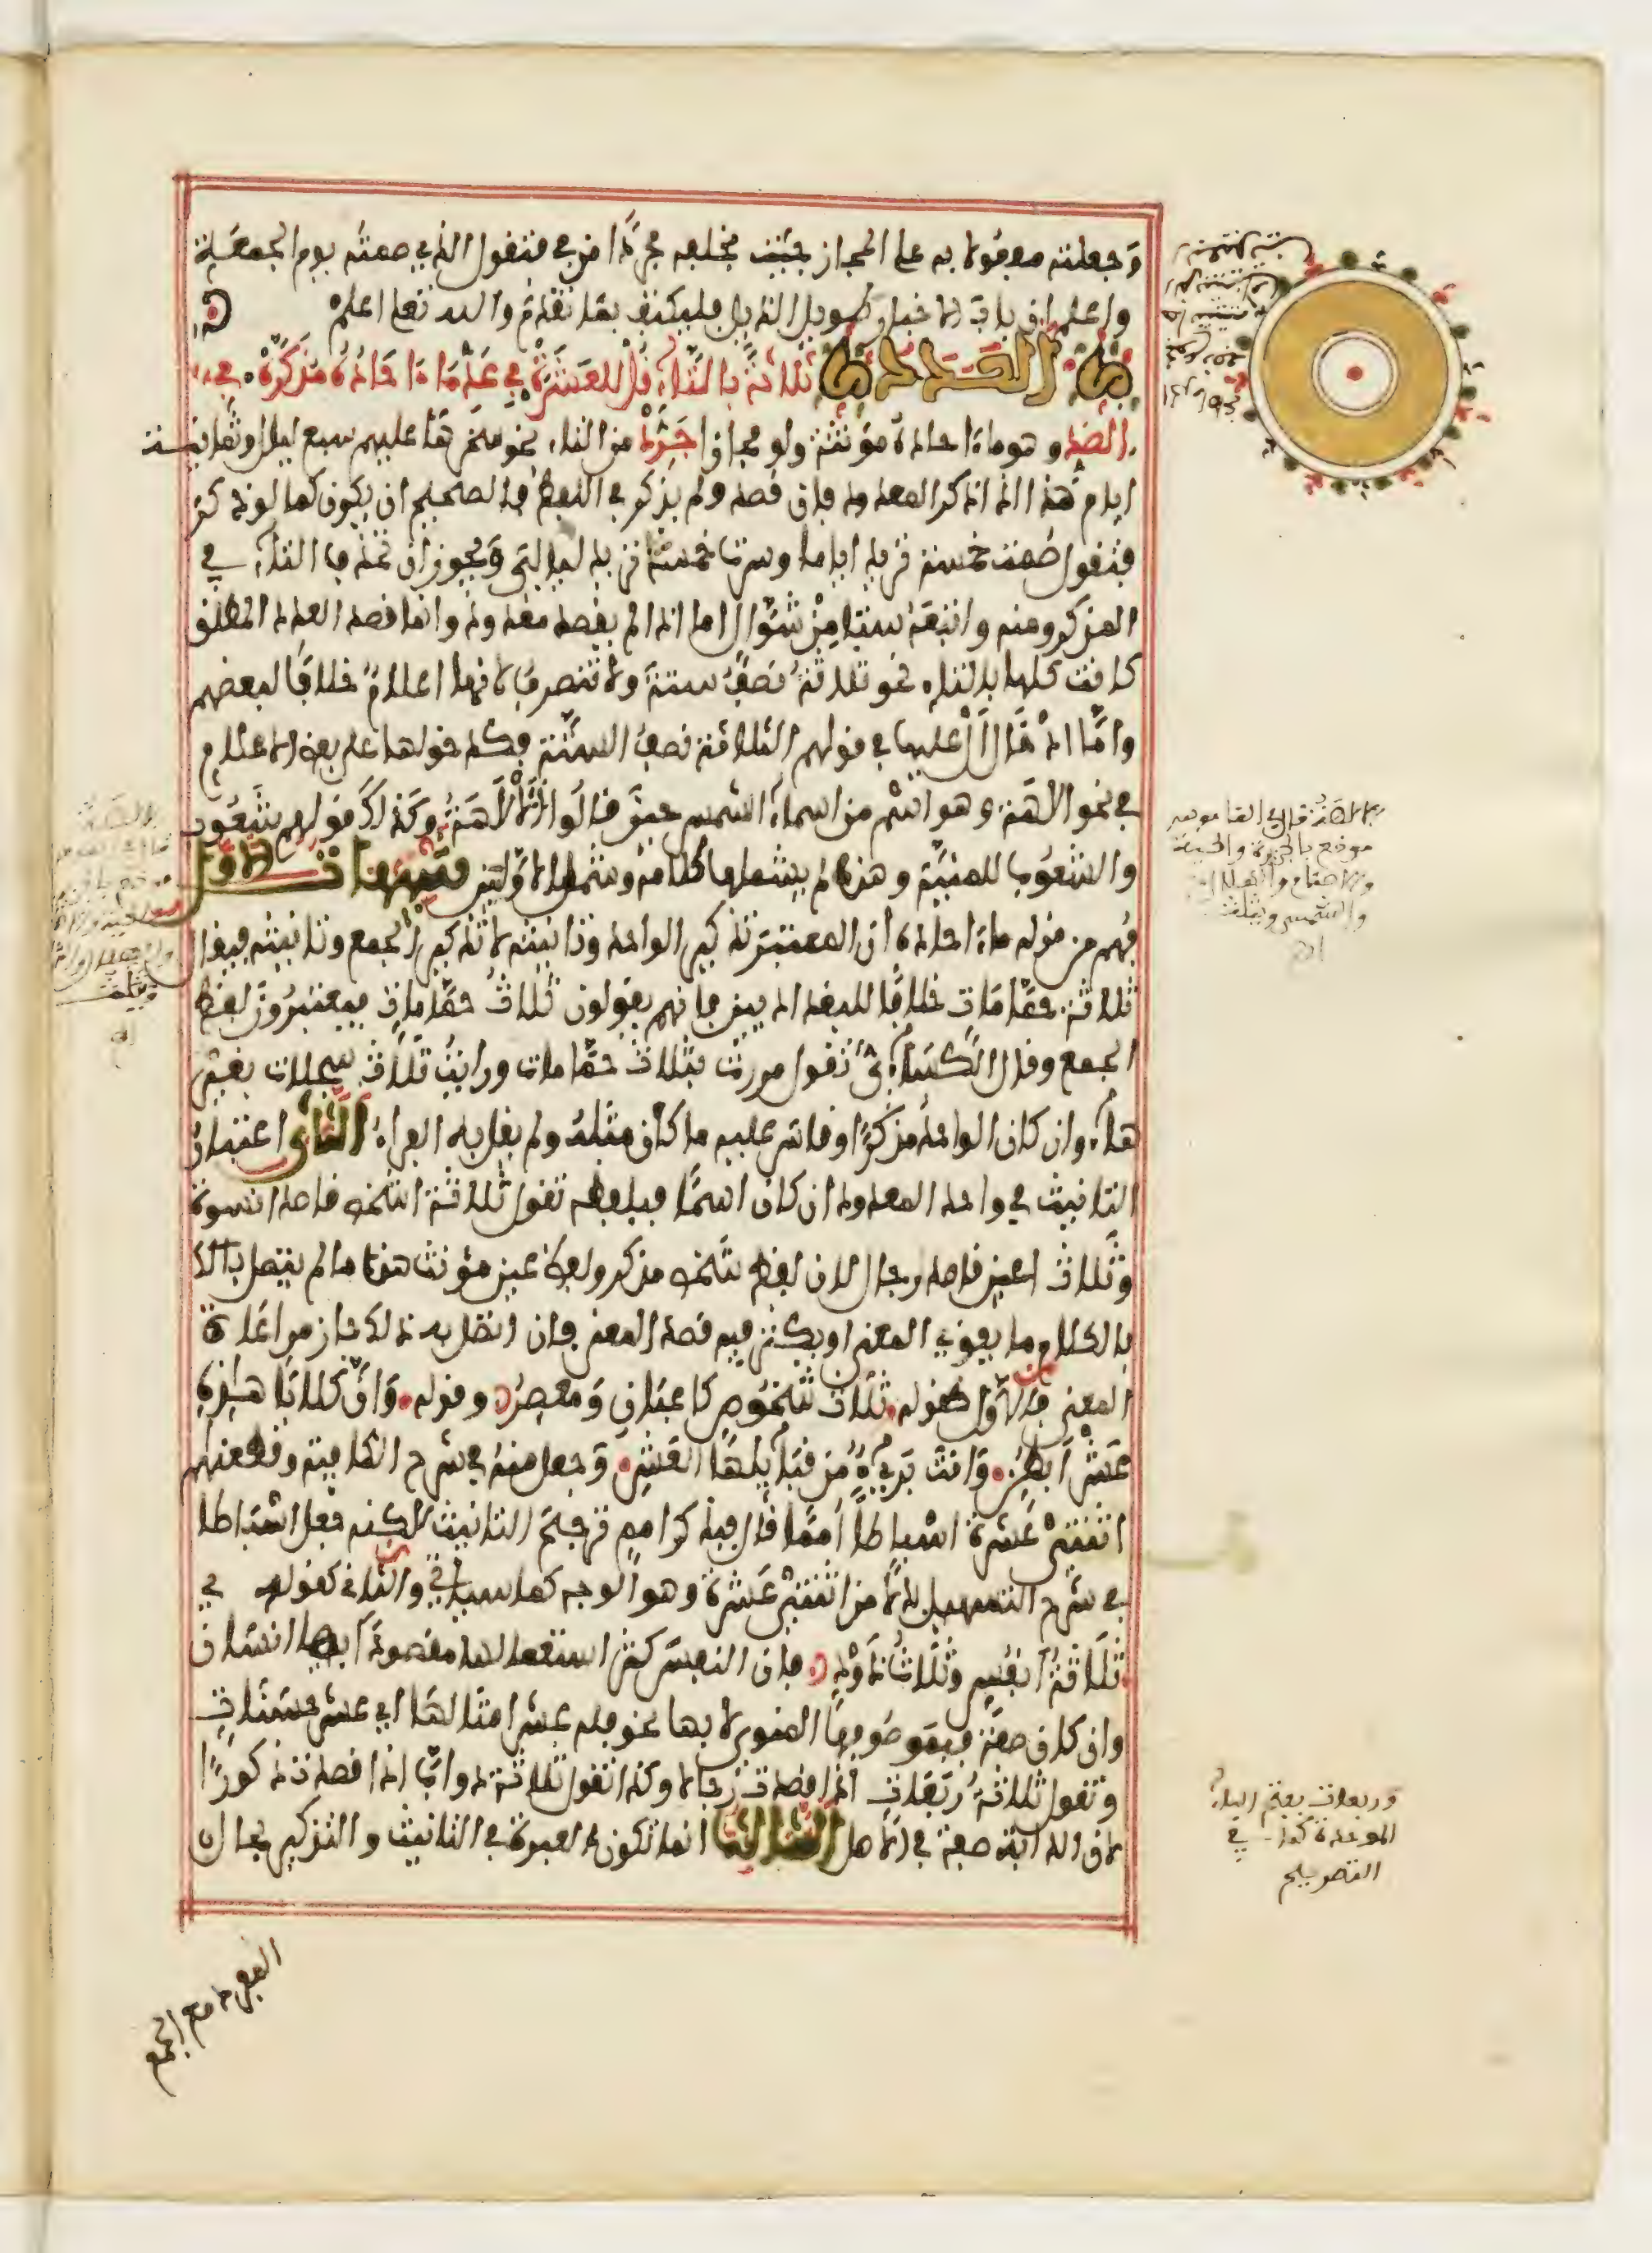 وجعلته مفعولا به على المجاز جئت بخلفه مجردا من في فتقول الذي صمته يوم الجمعة
واعلم ان باب الاخبار طويل الذيل فليكتف بما تقدم والله تعلى اعلم
العدد ثلاثة بالتاء قل للعشرة في عد ما احاده مذكرة في
الضد وهو ما احاده مؤنثة ولو مجازا جرد من التاء نحو سخرها عليهم سبع ليال وثمانية
ايام هذا اذا ذكر المعدود فان قصد ولم يذكر في اللفظ فالصحيح ان يكون كما لو ذكر
فتقول صمت خمسة تريد اياما وسرت خمسا تريد ليالي ويجوز ان تحذف التاء في
المذكر ومنه واتبعه ستا من شوال اما اذا لم يقصد معدود وانما قصد العدد المطلق
كانت كلها بالتاء نحو ثلاثة نصف ستة ولا تنصرف لانها اعلام خلافا لبعضهم
واما ادخال ال عليها في قولهم الثلاثة نصف الستة فكدخولها على بعض الاعلام
في نحو الالاهة وهو اسم من اسماء الشمس حين قالوا الالاهة وكذلك قولهم شعوب
والشعوب للمنية وهذه لم يشملها كلامه وشمل الاوليين تنبيهات الاول
فهم من قوله ما احاده ان المعتبر تذكير الواحد وتانيثه لا تذكير الجمع وتانيثه فيقال
ثلاثة حمامات خلافا للبغداديين فانهم يقولون ثلاث حمامات فيعتبرون لفظ
الجمع وقال الكسائي تقول مررت بثلاث حمامات ورايت ثلاث سجلات بغير
هاء وان كان الواحد مذكرا وقاس عليه ما كان مثله ولم يقل به الفراء الثاني اعتبار
التانيث في واحد المعدود ان كان اسما فبلفظه تقول ثلاثة اشخص قاصد نسوة
وثلاث اعين قاصد رجال لان لفظ شخص مذكر ولفظ عين مؤنث هذا ما لم يتصل بالك
بالكلام ما يقوي المعنى او يكثر فيه قصد المعنى فان اتصل به ذلك جاز مراعاة
المعنى فالاول كقوله ثلاث شخوص كاعبان ومعصر وقوله وان كلابا هذه
عشر ابطن وانت بريء من قبائلها العشر وجعل منه في شرح الكافية وقطعناهم
اثنتي عشرة اسباطا امما قال فبذكر امم ترجح التانيث لكنه جعل اسباطا
في شرح التسهيل بدلا من اثنتي عشرة وهو الوجه كما سياتي والثاني كقوله
ثلاثة انفس وثلاث ذود فان النفس كثر استعمالها مقصودا بها انسان
وان كان صفة فبموصوفها المنوي لا بها نحو فله عشر امثالها اي عشر حسنات
وتقول ثلاثة ربعات اذا قصدت رجالا وكذا تقول ثلاثة دواب اذا قصدت ذكورا
لان الدابة صفة في الاصل الثالث انما تكون العبرة في التانيث والتذكير بحال
المفرد مع الجمع
الالاهة قال في القاموس
موضع بالجزيرة والحية
والاصنام والهلال
والشمس ويثلث
اه
وربعات بفتح الباء
الموحدة كما في
التصريح